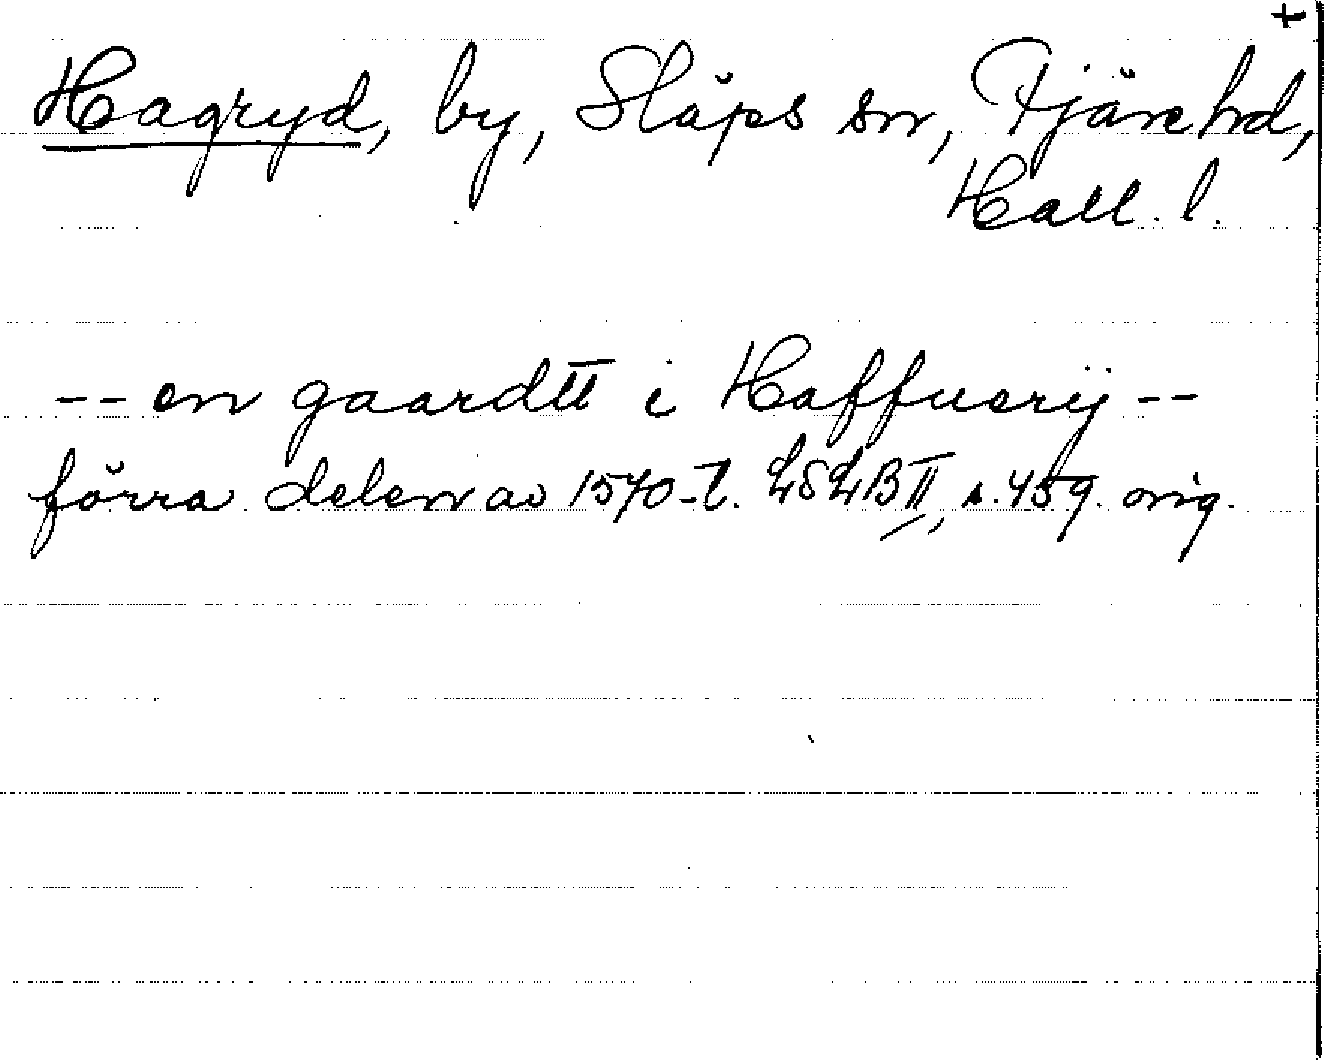 +
Hagryd, by, Släps sn, Fjäre hd,
Hall. l.
-- en gaardtt i Haffuerij --
förra delen av 1570-t. LSLB II, s. 459. orig.